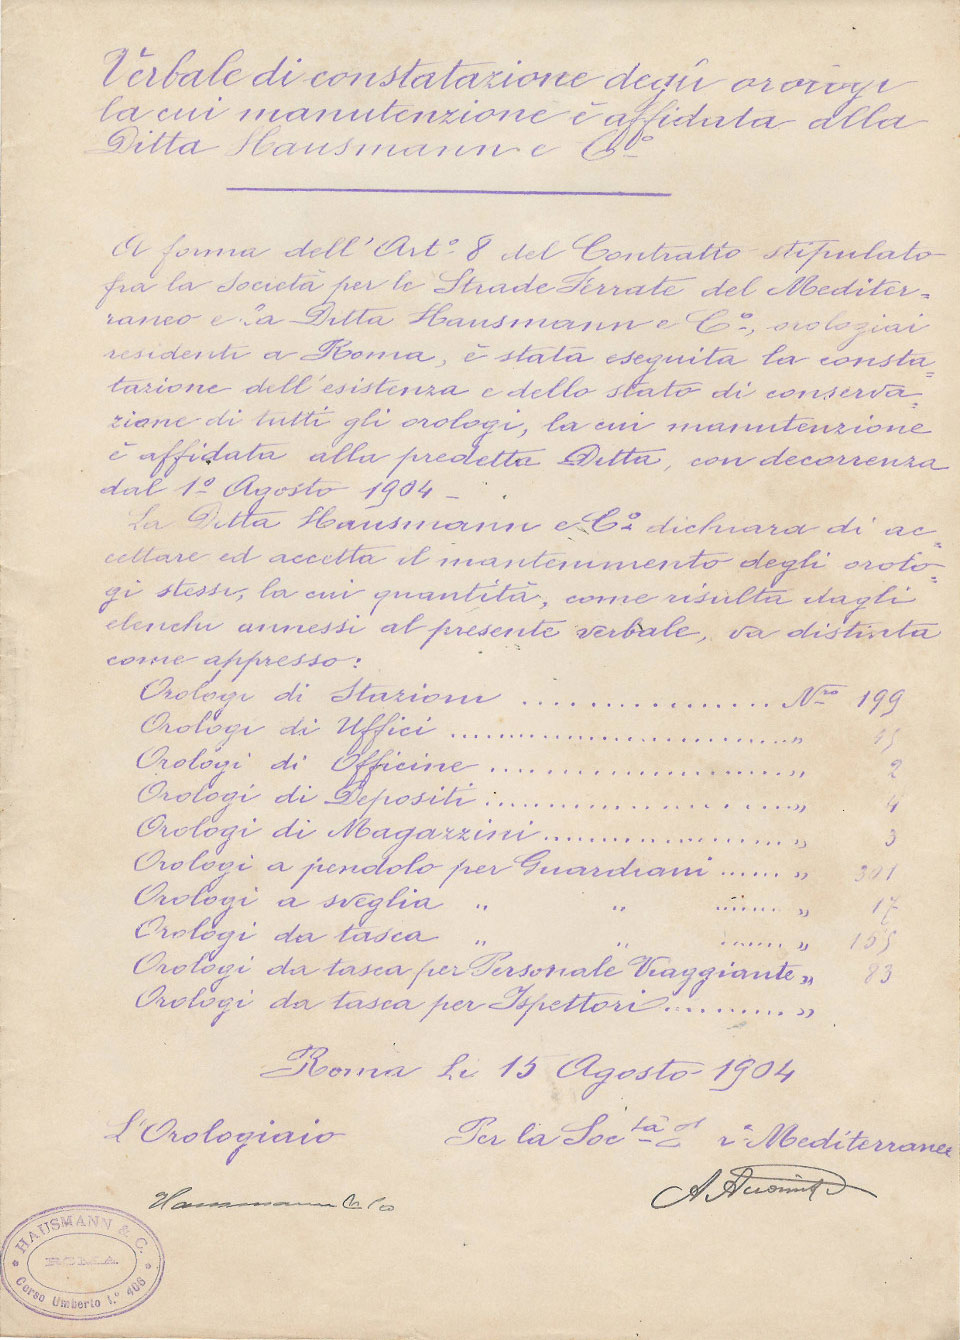 Verbale di constatazione degli orologi
la cui manutenzione è affidata alla
Ditta Hausmann e Cº
A forma dell'Artº 8 del Contratto stipulato
fra la Società per le Strade Ferrate del Mediter=
raneo e la Ditta Hausmann e Cº, orologiai
residenti a Roma, è stata eseguita la consta=
tazione dell'esistenza e dello stato di conserva=
zione di tutti gli orologi, la cui manutenzione
è affidata alla predetta Ditta, con decorrenza
dal 1º Agosto 1904 -
La Ditta Hausmann e Cº dichiara di ac=
cettare ed accetta il mantenimento degli orolo=
gi stessi, la cui quantità, come risulta dagli
elenchi annessi al presente verbale, va distinta
come appresso:
Orologi di Stazioni ................ Nro 199
Orologi di Uffici ................ "
Orologi di Officine ................ " 2
Orologi di Depositi ................ " 4
Orologi di Magazzini ................ " 3
Orologi a pendolo per Guardiani ...... " 301
Orologi a sveglia " " ...... " 17
Orologi da tasca " " ...... "
Orologi da tasca per Personale Viaggiante " 83
Orologi da tasca per Ispettori .......... "
Roma li 15 Agosto 1904
L'Orologiaio Per la Soctà Mediterranea
Hausmann & Co
HAUSMANN & C.
ROMA
Corso Umberto I.º 406